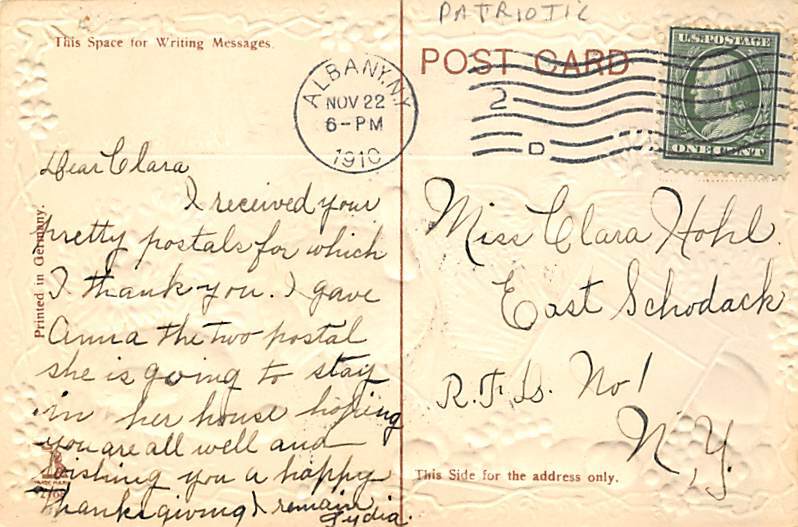 PATRIOTIC
This Space for Writing Messages.
POST CARD
ALBANY, N.Y.
NOV 22
6-PM
1910
2
D
U.S. POSTAGE
ONE CENT
Printed in Germany.
Dear Clara
I received your
pretty postals for which
I thank you. I gave
Anna the two postal
she is going to stay
in her house hoping
you are all well and
wishing you a happy
thanksgiving I remain
Lydia.
Miss Clara Hohl.
East Schodack
R.F.D. No 1
N.Y.
This Side for the address only.